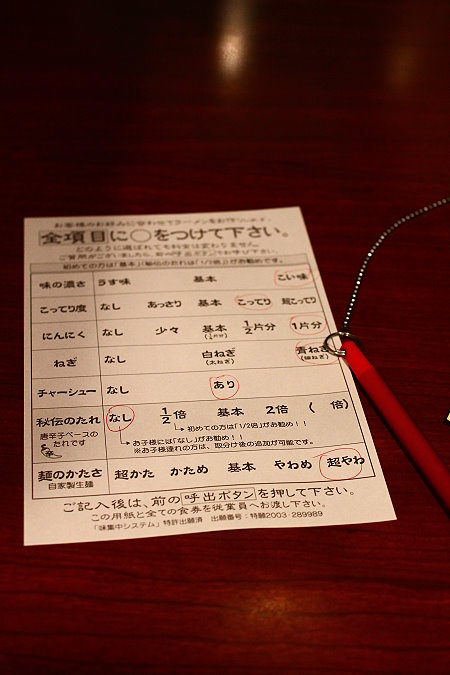 お客様のお好みに合わせてラーメンをお作りします。
全項目に○をつけて下さい。
どのように選ばれても料金は変わりません。
ご質問がございましたら、前の呼出ボタンでお呼び下さい。
初めての方は「基本」(秘伝のたれは「1/2倍」)がお勧めです。
味の濃さ うす味 基本 こい味
こってり度 なし あっさり 基本 こってり 超こってり
にんにく なし 少々 基本 1/2片分 1片分
ねぎ なし 白ねぎ 青ねぎ
(太ねぎ) (細ねぎ)
チャーシュー なし あり
秘伝のたれ なし 1/2倍 基本 2倍 ( 倍)
唐辛子ベースの
たれです
初めての方は「1/2倍」がお勧め!!
お子様には「なし」がお勧め!!
※お子様連れの方は、取分け後の追加が可能です。
麺のかたさ 超かた かため 基本 やわめ 超やわ
自家製生麺
ご記入後は、前の呼出ボタンを押して下さい。
この用紙と全ての食券を従業員へお渡し下さい。
「味集中システム」特許出願済 出願番号:特願2003-289989